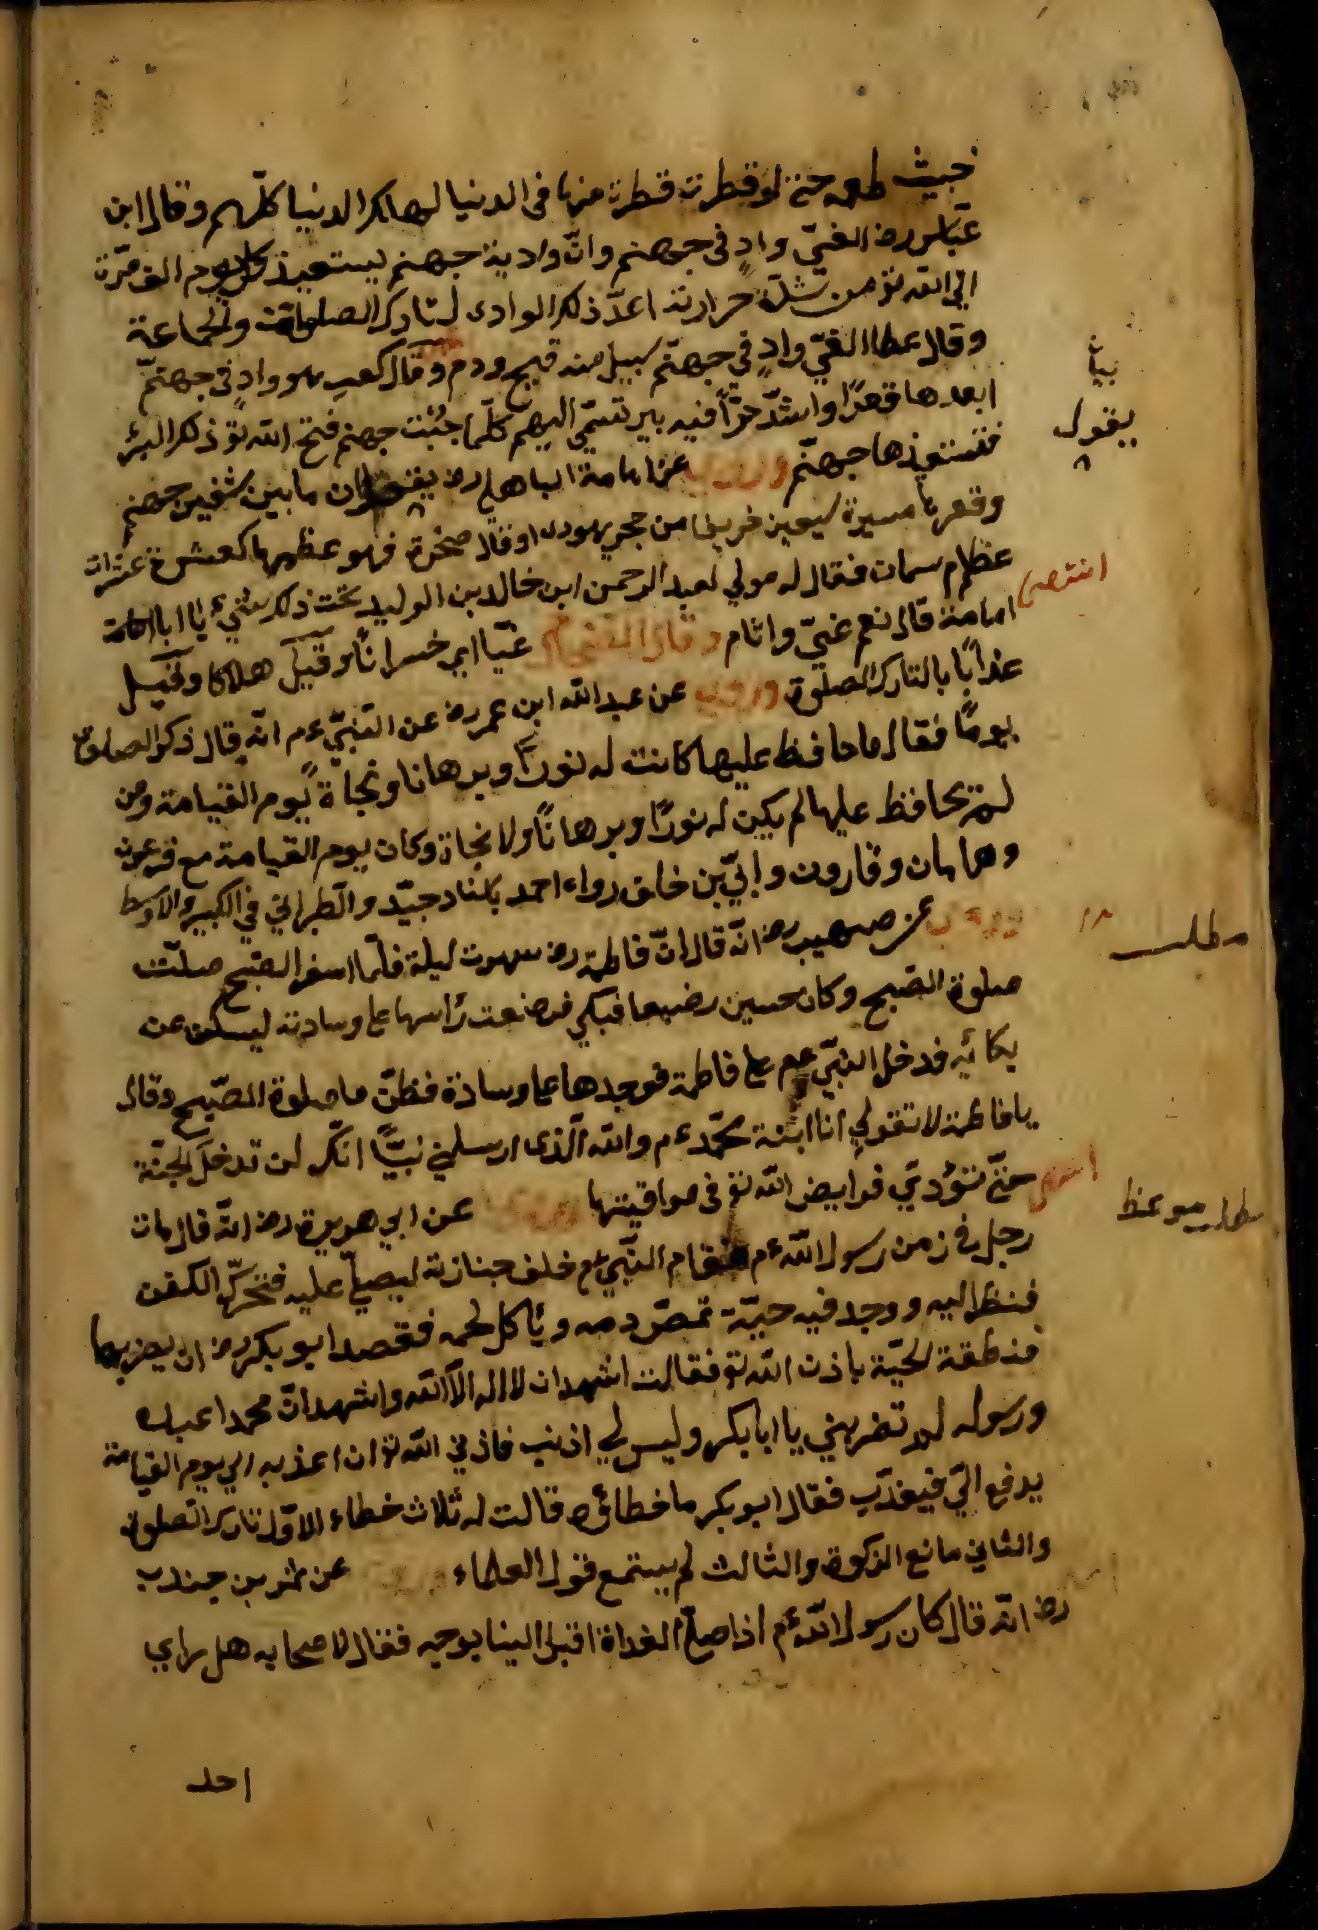 خبيث طعمه حتى لو قطرت قطرة منها في الدنيا لهلك الدنيا كلّهم وقال ابن
عبّاس رض الغيّ وادٍ في جهنم وانّ وادية جهنم يستعيذ كل يوم الف مرّة
الى الله تع من شدّة حرارته اعدّ ذلك الوادى لتارك الصلوة والجماعة
وقال عطا الغيّ وادٍ في جهنّم يسيل منه قيح ودم وقال كعب هو وادٍ في جهنّم
ابعدها قعرًا واشدّ حرّا فيه بير تسمّى الهيم كلّما خبت جهنم فتح الله تع ذلك البئر
فتستعيذها جهنّم وروى عن ابا مامة الباهلي رض يقول ان ما بين شفير جهنم
وقعرها مسيرة سبعين خريفا من حجر يهودى او قال صخرة فهو عظمها كعشرة عشرات
عظام سمان فقال له مولي لعبد الرحمن ابن خالد بن الوليد تحت ذلك شئ يا ابا
امامة قال نعم غيّ واثام وقال الضحاك غيّا اي خسرانًا وقيل هلاكا وقيل
عذابًا بالتارك الصلوة وروى عن عبد الله ابن عمر رض عن النّبيّ عم انّه قال ذكر الصلوة
يومًا فقال ما حافظ عليها كانت له نورًا وبرهانا ونجاةً يوم القيامة ومن
لم يحافظ عليها لم يكن له نورًا وبرهانًا ولا نجاة وكان يوم القيامة مع فرعون
وهامان وقارون وابيّ بن خلف رواه احمد باسناد جيّد والطبراني في الكبير والاوسط
وروى عن صهيب رض انّه قال انّ فاطمة رض سهرت ليلة فلمّا اسفر الصّبح صلّت
صلوة الصّبح وكان حسين رضيعا فبكى فوضعت رأسها على وسادته ليسكن عن
بكائه فدخل النبيّ عم على فاطمة فوجدها على وسادة فظنّ ما صلوة الصّبح وقال
يا فاطمة لا تقولي انا ابنة محمّد عم والله الّذى ارسلني نبيًّا انّك لن تدخل الجنّة
حتّى تؤدّي فرايض الله تع في مواقيتها وروى عن ابي هريرة رض انّه قال مات
رجل في زمن رسول الله عم فقام النّبيّ عم خلف جنازته ليصلّي عليه فتحرّك الكفن
فنظر اليه ووجد فيه حيّة تمصّ دمه ويأكل لحمه فقصد ابو بكر رض ان يضربها
فنطقة الحيّة باذن الله تع فقالت اشهد ان لا اله الّا الله واشهد انّ محمدا عبده
ورسوله لم تضربني يا ابا بكر وليس لي اذنب فاذني الله تع ان اعذبه الي يوم القيامة
يدفع اليّ فيعذّب فقال ابو بكر ما خطاؤه قالت له ثلاث خطاء الاوّل تارك الصّلوة
والثاني مانع الزكوة والثالث لم يستمع قول العلماء عن سمر بن جندب
رض انّه قال كان رسول الله عم اذا صلّى الغداة اقبل الينا بوجهه فقال لاصحابه هل رأي
احد
بيان
يقول
انتهى
مطلب
انتهى
مطلب موعظ